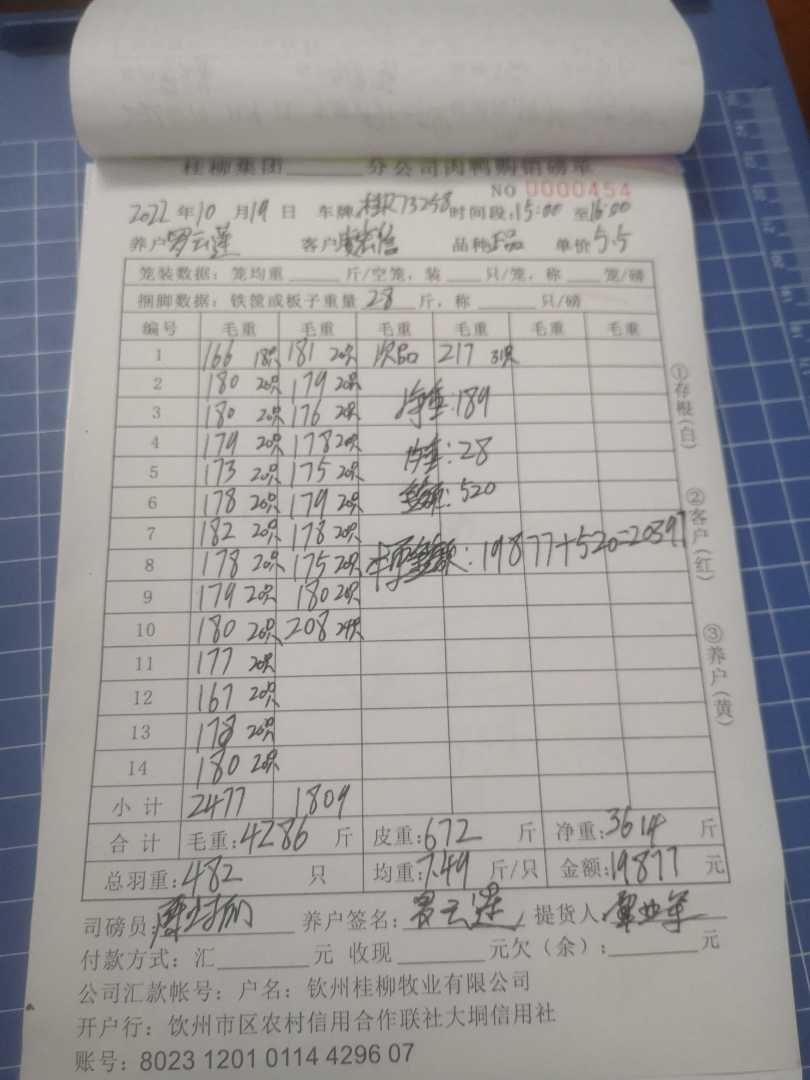 桂柳集团______分公司肉鸭购销磅单
NO 0000454
2022 年 10 月 19 日 车牌 桂R73258 时间段:15:00 至 16:00
养户 罗云莲 客户 品种 正品 单价 5.5
笼装数据: 笼均重 ______ 斤/空笼, 装 ____ 只/笼, 称 ____ 笼/磅
捆脚数据: 铁筐或板子重量 28 斤, 称 ______ 只/磅
编号 毛重 毛重 毛重 毛重 毛重 毛重
1 166 18只 181 20只 次品 217 31只
2 180 20只 179 20只
3 180 20只 176 20只 净重:189
4 179 20只 178 20只 皮重:28
5 173 20只 175 20只
6 178 20只 179 20只 金额:520
7 182 20只 178 20只
8 178 20只 175 20只 总金额:19877+520=20397
9 179 20只 180 20只
10 180 20只 208 24只
11 177 20只
12 167 20只
13 178 20只
14 180 20只
小计 2477 1809
合计 毛重:4286 斤 皮重:672 斤 净重:3614 斤
总羽重:482 只 均重:7.49 斤/只 金额:19877 元
司磅员: 养户签名: 罗云莲 提货人
付款方式: 汇______元 收现______元欠(余):______元
公司汇款帐号: 户名: 钦州桂柳牧业有限公司
开户行: 钦州市区农村信用合作联社大垌信用社
账号: 8023 1201 0114 4296 07
①存根(白)
②客户(红)
③养户(黄)